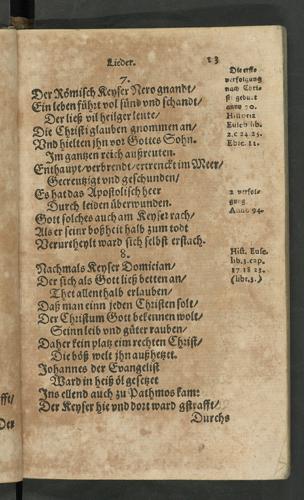 Lieder. 13
7.
Der Römisch Keyser Nero gnandt/
Ein leben führt vol sünd vnd schandt/
Der ließ vil heilger leute/
Die Christi glauben gnommen an/
Vnd hielten jhn vor Gottes Sohn.
Im gantzen reich außreuten.
Enthaupt/verbrendt/ertrenckt im Meer/
Gecreutzigt vnd geschunden/
Es hat das Apostolisch heer
Durch leiden überwunden.
Gott solches auch am Keyser rach/
Als er seinr boßheit halb zum todt
Verurtheylt ward sich selbst erstach.
8.
Nachmals Keyser Domician/
Der sich als Gott ließ betten an/
Thet allenthalb erlauben/
Daß man einn jeden Christen solt/
Der Christum Gott bekennen wolt/
Seinn leib vnd güter rauben/
Daher kein platz eim rechten Christ/
Die böß welt jhn außhetzet.
Johannes der Evangelist
Ward in heiß öl gesetzet
Ins ellend auch zu Pathmos kam:
Der Keyser hie vnd dort ward gstrafft/
Durchs
Die erste
verfolgung
nach Chris-
ti geburt
anno 70.
Historia
Euseb. lib.
2.c 24.25.
2 verfol-
gung
Anno 94.
Hist. Euse.
lib.3.cap.
17.18 23.
(libr.3.)
fft/
Der